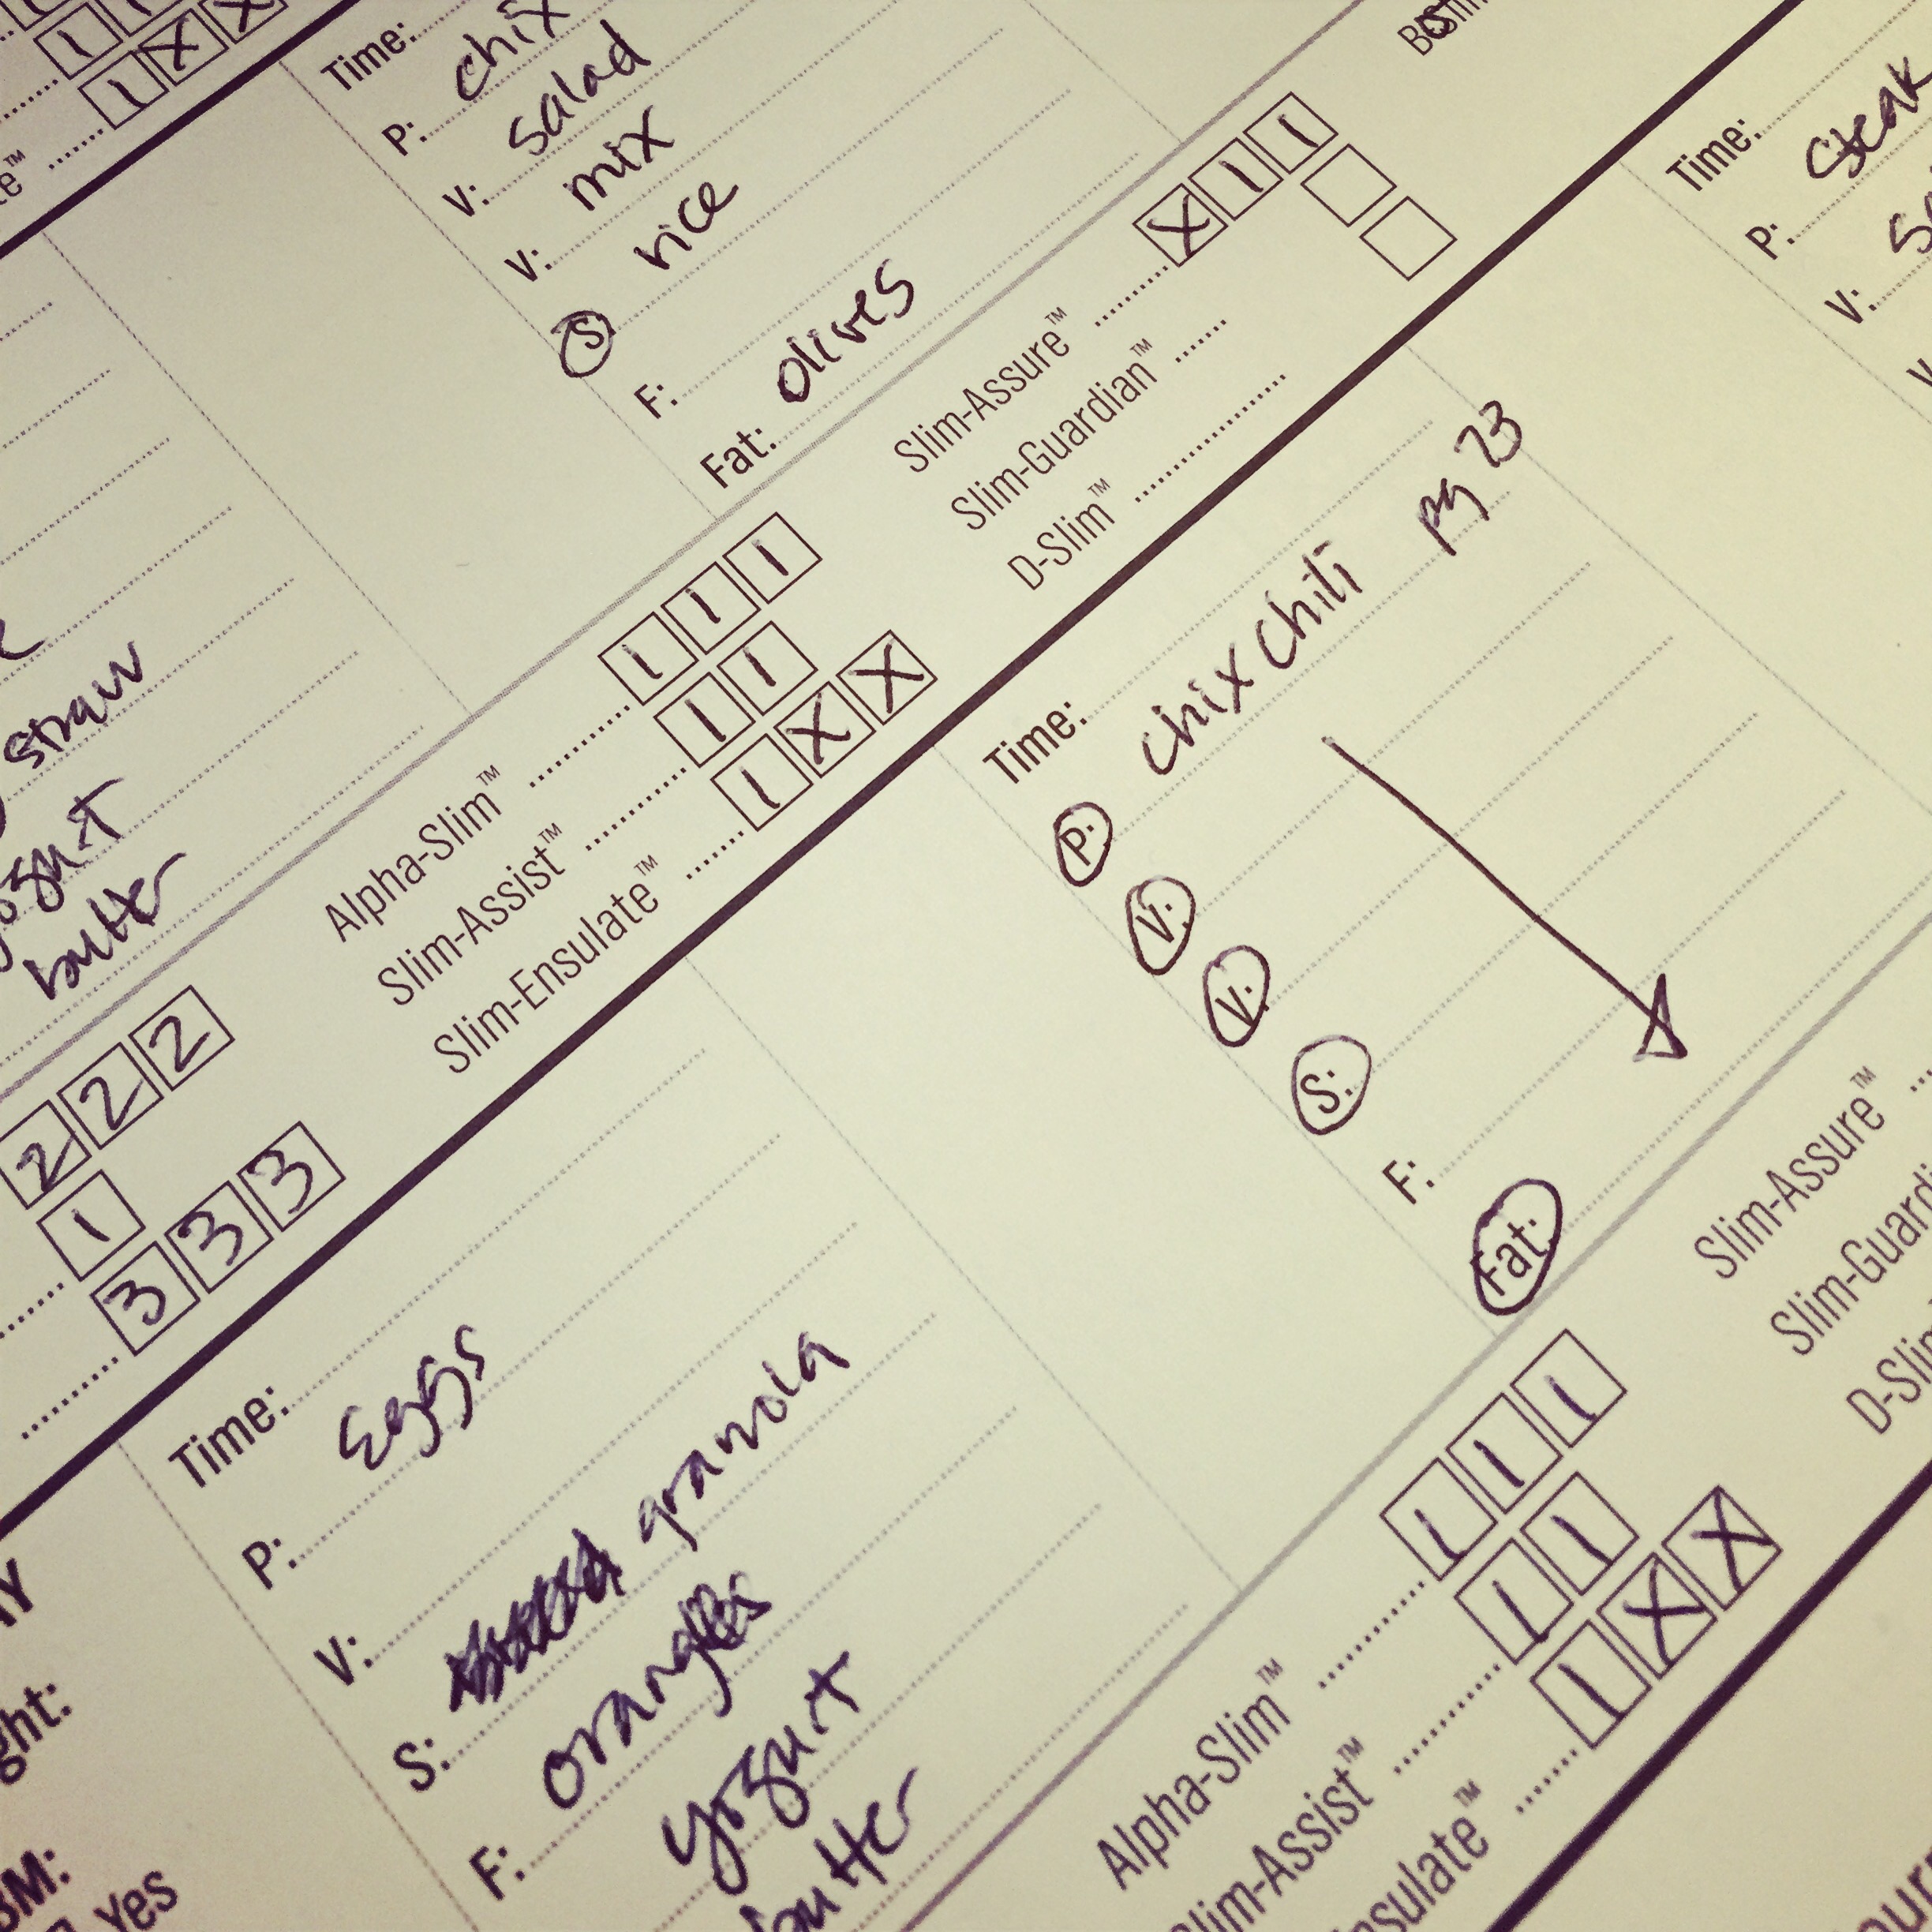 Time:
P: chix
V: salad
V: mix
S: rice
F:
Fat: olives
Slim-Assure™ X 1 1
Slim-Guardian™
D-Slim™
Time:
P: Steak
V:
straw
butter
Alpha-Slim™ 1 1 1
Slim-Assist™ 1 1
Slim-Ensulate™ 1 X X
2 2 2
1
3 3 3
Time:
P: chix chili pg 23
V:
V:
S:
F:
Fat:
Slim-Assure™
Time:
P: Eggs
V:
S: granola
F: oranges
yogurt
butter
Alpha-Slim™ 1 1 1
Slim-Assist™ 1 1
1 X X
Yes